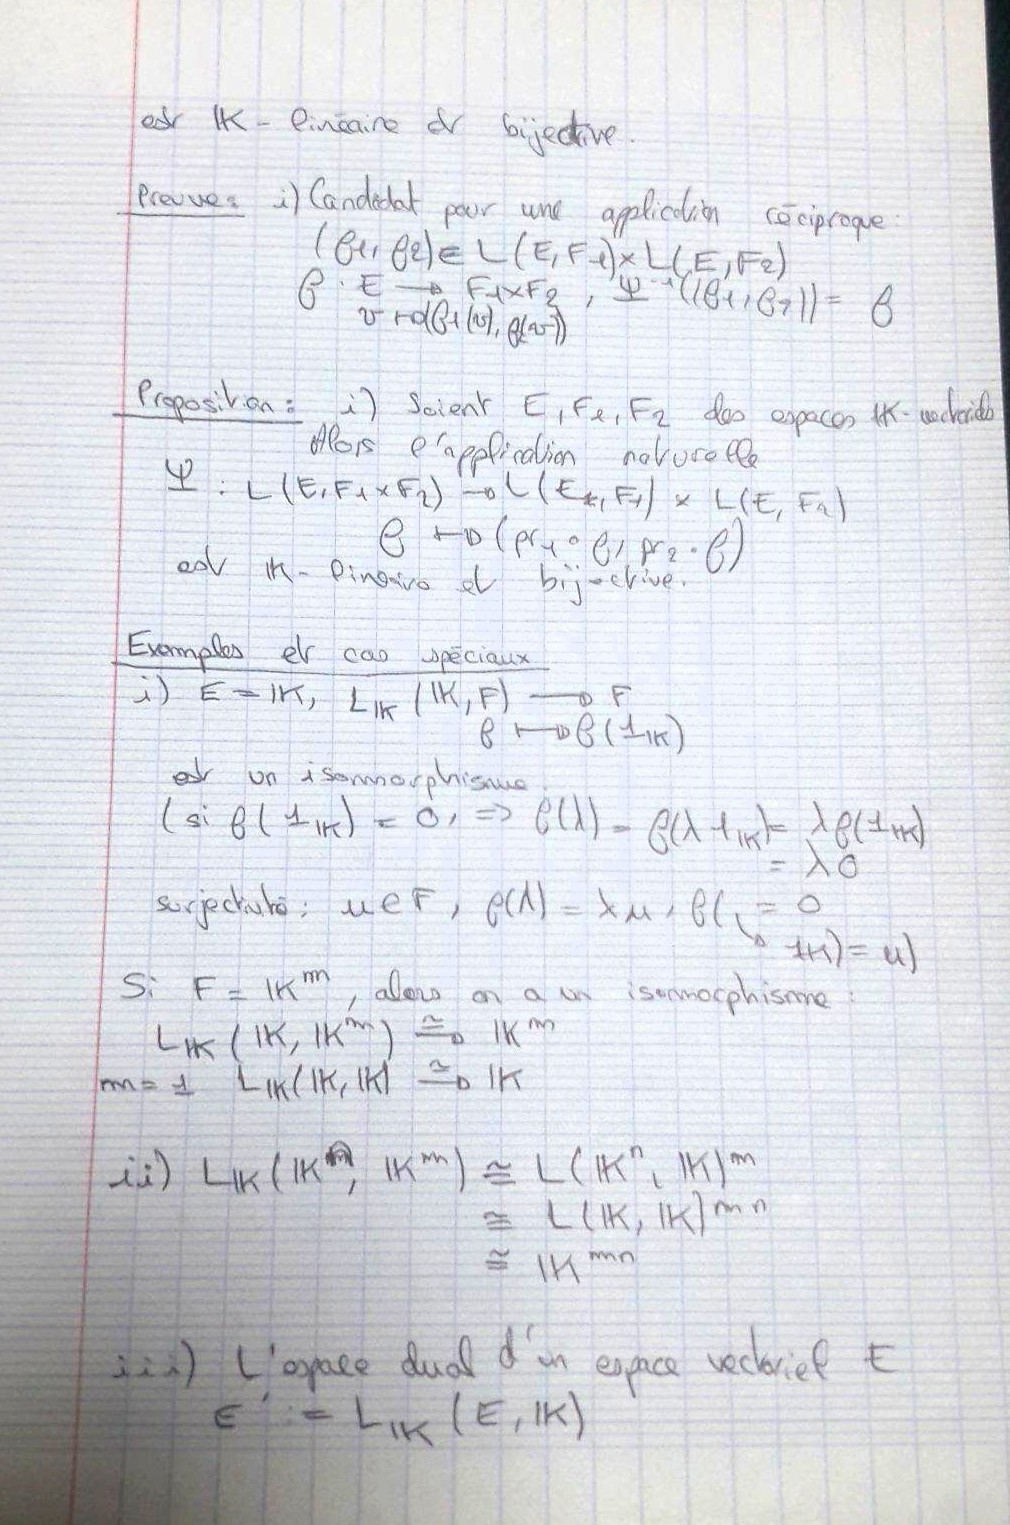 est IK-linéaire et bijective.
Preuve : i) Candidat pour une application réciproque :
(f1, f2) ∈ L(E, F1) × L(E, F2)
f : E → F1×F2 , Ψ⁻¹((f1, f2)) = f
v ↦ (f1(v), f2(v))
Proposition : i) Soient E, F1, F2 des espaces IK-vectoriels
Alors l'application naturelle
Ψ : L(E, F1×F2) → L(E, F1) × L(E, F2)
f ↦ (pr1 ∘ f, pr2 ∘ f)
est IK-linéaire et bijective.
Exemples et cas spéciaux
i) E = IK, L_IK (IK, F) → F
f ↦ f(1_IK)
est un isomorphisme.
(si f(1_IK) = 0, => f(λ) = f(λ 1_IK) = λ f(1_IK)
= λ0
surjectivité : u ∈ F, f(λ) = λu, f( = 0
1_IK) = u)
Si F = IK^m, alors on a un isomorphisme :
L_IK (IK, IK^m) ≅→ IK^m
m = 1 L_IK(IK, IK) ≅→ IK
ii) L_IK(IK^n, IK^m) ≅ L(IK^n, IK)^m
≅ L(IK, IK)^mn
≅ IK^mn
iii) L'espace dual d'un espace vectoriel E
E' := L_IK (E, IK)